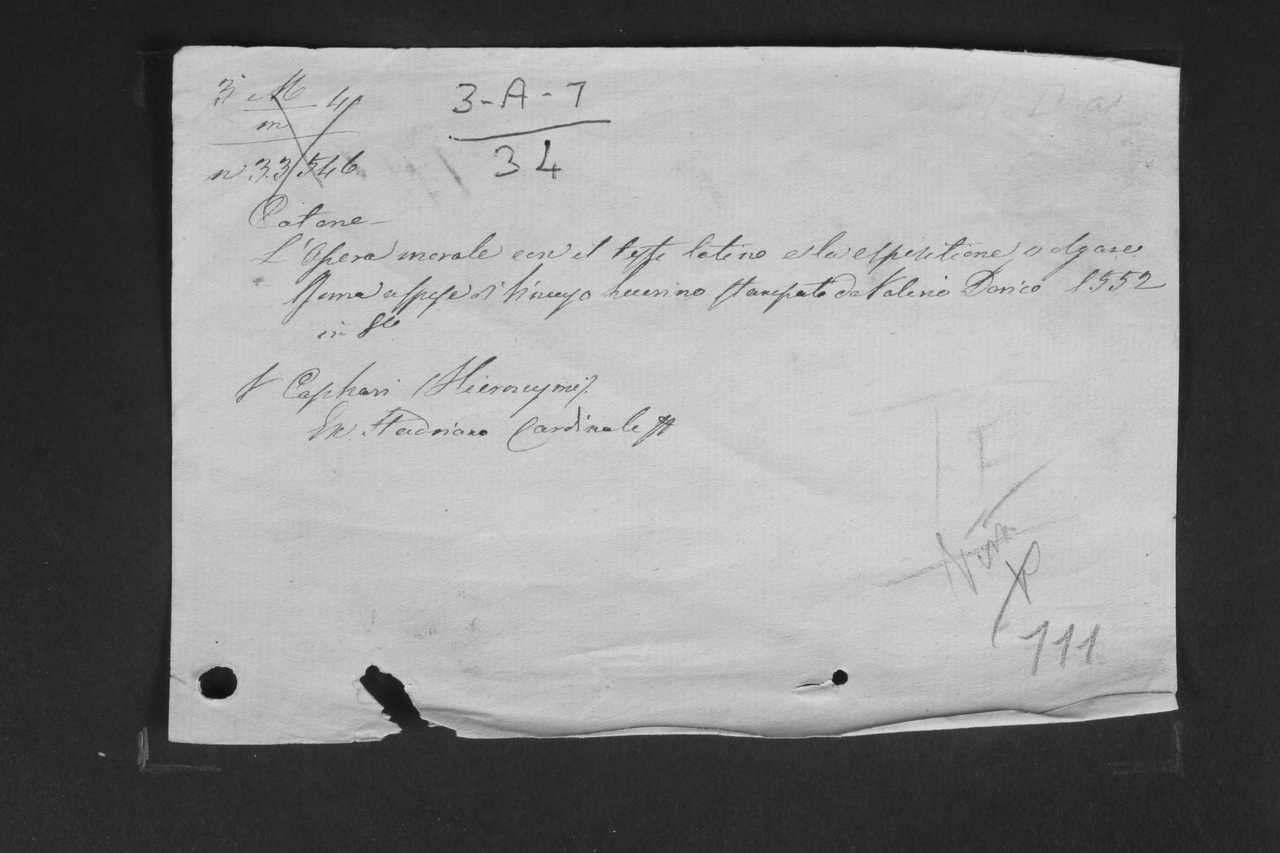 3ª M 4
m
n 33546
3-A-7
34
Catone
L'Opera morale con il testo latino e la espositione volgare
Roma a spese di Lucrino stampata da Valerio Dorico 1552
in 8º
Caphari (Hieronymi)
Cardinale
I E
111